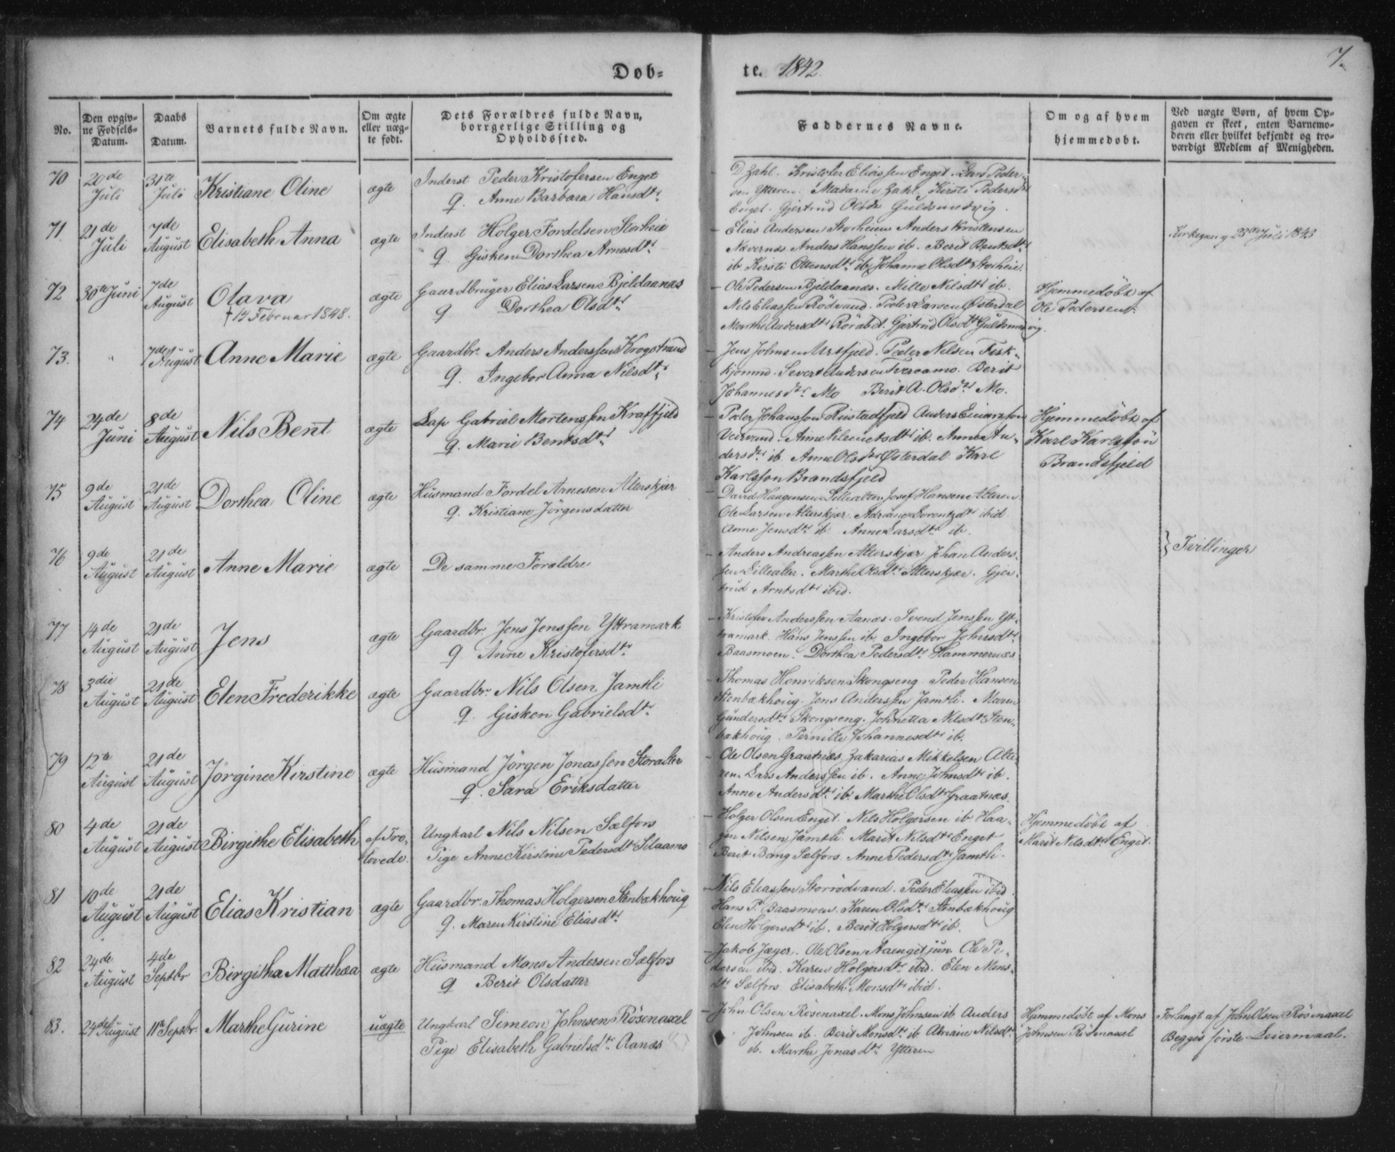 Døb= te. 1842. 7.
No. Den opgivne Fødsels-Datum. Daabs Datum. Barnets fulde Navn. Om ægte eller uægte født. Dets Forældres fulde Navn, borgerlige Stilling og Opholdssted. Faddernes Navne. Om og af hvem hjemmedøbt. Ved uægte Børn, af hvem Opgaven er skeet, enten Barnemoderen eller hvilket bekjendt og troværdigt Medlem af Menigheden.
70 20de Juli 31te Juli Kristiane Oline ægte Inderst Peder Kristofersen Enget
q. Anne Barbara Hansdtr
D. Zahl. Kristofer Eliassen Enget. Lars Peder-
sen Ytteren. Madame Zahl. Kirsti Pedersdtr
Enget. Gjertrud Olsdtr Guldsmedvig.
71 21de Juli 7de August Elisabeth Anna ægte Inderst Holger Fordelsen Storheie
q. Gisken Dorthea Arnesdtr
Elias Andersen Storheien Anders Kristensen
Nævernæs Anders Hanssen ib. Berit Bentsdtr
ib. Kirsti Ottersdtr ib. Johanna Olsdtr Storheie.
Kirkegang 23de Juli 1843
72 30te Juni 7de August Olava
† 14 Februar 1848.
ægte Gaardbruger Elias Larsen Bjeldaanæs
q Dorthea Olsdtr
Ole Pedersen Bjeldaanæs. Mette Nilsdtr ib.
Nils Eliassen Rödvand. Peder Larsen Østerdal
Marthe Andersdtr Röråbet. Gjertrud Olsdtr Guldsmedvig.
Hjemmedöbt af
Ole Pedersen
73. " 7de August Anne Marie ægte Gaardbr. Anders Anderssen Krogstrand
q. Ingebor Anna Nilsdtr
Jens Johnsen Ursfjeld. Peder Nilsen Fisk-
kjønmo. Sivert Andersen Tveraamo. Berit
Johannesdtr Mo Berit A. Olsdtr Mo.
74 24de Juni 8de August Nils Bent ægte Lap Gabriel Mortenssen Kraffjeld
q. Marie Bentsdtr
Peder Johanssen Rüstadfjeld Anders Einarssen
Veivand. Anne Klemetsdtr ib. Anna An-
dersdtr ib Anne Olsdtr Østerdal Karl
Karlsson Brandsfjeld
Hjemmedöbt af
Karl Karlsson
Brandsfjeld
75 9de August 21de August Dorthea Oline ægte Husmand Fordel Arnesen Alterskjær
q. Kristiane Jørgensdatter
David Haagensen Lillealteren Josef Hansen Alteren
Ole Larsen Alterskjær. Adriane Lorentzdtr ibid
Anne Jensdtr ib Anne Larsdtr ib.
} Tvillinger
76 9de August 21de August Anne Marie ægte De samme Forældre
Anders Andreassen Alterskjær Johan Anders-
sen Lillealter. Marthe Olsdtr Alterskjær. Gjer-
trud Arntsdtr ibid.
77 14de August 21de August Jens ægte Gaardbr. Jens Jenssen Yttramark
q Anne Kristofersdtr
Kristofer Anderssen Aanæs. Svend Jenssen Yt-
tramark. Hans Jenssen ib. Ingebor Johnsdtr
Baasmoen. Dorthea Pedersdtr Hammernæs
78 3die August 21de August Elen Frederikke ægte Gaardbr. Nils Olsen Jamtli
q. Gisken Gabrielsdtr
Thomas Henriksen Skongseng. Peder Hansen
Stenbækhoug Jens Anderssen Jamtli. Maren
Gundersdtr Skongseng. Johnetta Nilsdtr Sten-
bækhoug. Pernille Johannesdtr ib.
79 12te August 21de August Jørgine Kirstine ægte Husmand Jørgen Jonassen Storalter
q. Sara Eriksdatter
Ole Olsen Graatnæs Zakarias Mikkelsen Alte-
ren Lars Anderssen ib. Anne Johnsdtr ib.
Anne Andersdtr ib. Marthe Olsdtr Graatnæs.
80 4de August 21de August Birgithe Elisabeth af Tro-
lovede.
Ungkarl Nils Nilsen Sælfors
Pige Anne Kirstine Pedersdtr Slaamo
Holger Olsen Enget. Nils Holgersen ib. Haa-
gen Nilsen Jamtli. Marit Nilsdtr Enget
Berit Bang Sælfors. Anne Pedersdtr Jamtli.
Hjemmedöbt af
Marit Nilsdtr Enget.
81 10de August 21de August Elias Kristian ægte Gaardbr. Thomas Holgersen Stenbækhoug
q. Maren Kirstine Eliasdtr
Nils Eliassen Storrödvand. Peder Eliassen ibid.
Hans P. Baasmoen. Karen Olsdtr Stenbækhoug
Elen Holgersdtr ib. Berit Holgersdtr ib.
82 24de August 4de Septbr Birgitha Matthea ægte Husmand Mons Andersen Sælfors
q Berit Olsdatter
Jakob Jæger. Ole Olsen Aaenget jun. Ole Pe-
dersen ibid. Karen Holgersdtr ibid. Elen Mons-
dtr Sælfors Elisabeth Monsdtr ibid.
83. 24de August 11te Septbr Marthe Gurine uægte Ungkarl Simeon Johnsen Røsenaxel
Pige Elisabeth Gabrielsdtr Aanæs
John Olsen Røsenaxel Mons Johnsen ib. Anders
Johnsen ib. Berit Monsdtr ib. Adriane Nilsdtr
ib. Marthe Jonasdtr Ytteren
Hjemmedøbt af Mons
Johnsen Røsenaxel
Forlangt af John Olsen Røsenaxel
Begges første Leiermaal.